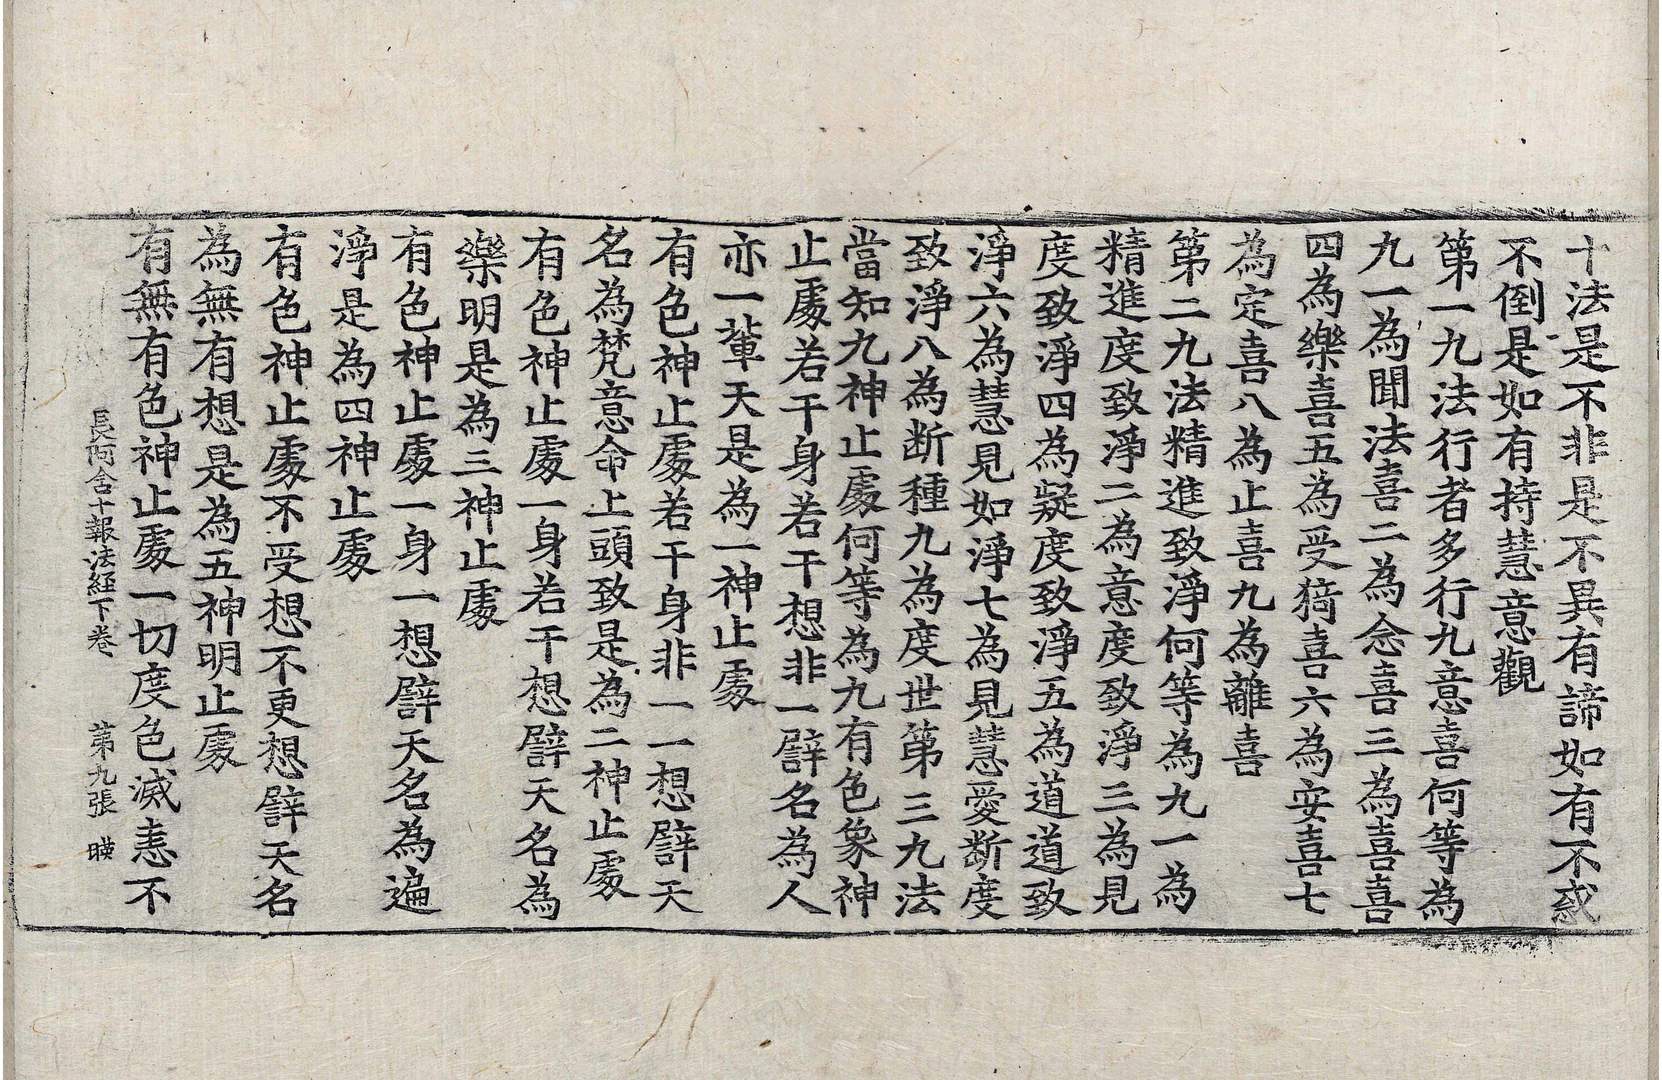 十法是不非是不異有諦如有不或
不倒是如有持慧意觀
第一九法行者多行九意喜何等為
九一為聞法喜二為念喜三為喜喜
四為樂喜五為受猗喜六為安喜七
為定喜八為止喜九為離喜
第二九法精進致淨何等為九一為
精進度致淨二為意度致淨三為見
度致淨四為疑度致淨五為道道致
淨六為慧見如淨七為見慧愛斷度
致淨八為断種九為度世第三九法
當知九神止處何等為九有色象神
止處若干身若干想非一譬名為人
亦一輩天是為一神止處
有色神止處若干身非一一想譬天
名為梵意命上頭致是為二神止處
有色神止處一身若干想譬天名為
樂明是為三神止處
有色神止處一身一想譬天名為遍
淨是為四神止處
有色神止處不受想不更想譬天名
為無有想是為五神明止處
有無有色神止處一切度色滅恚不
長阿含十報法經下卷 第九張 暎